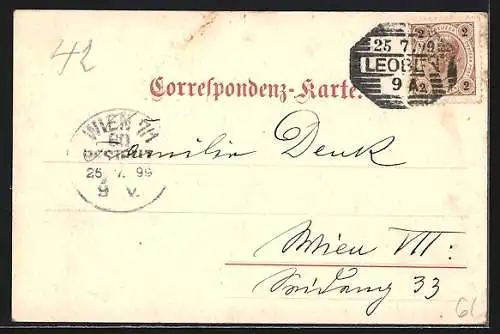 42
25 7 99
LEOBEN
9 A
2 2
2 2
Correspondenz-Karte.
WIEN 7/1
BESTELLT
25. 7. 99
9 V.
Familie Denk
Wien VII:
33